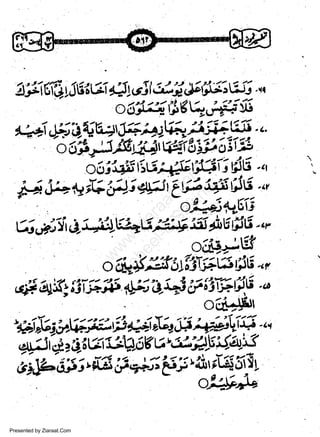 ۵۱۲
۶۹۔ وَلَمَّا دَخَلُوا عَلَىٰ يُوسُفَ آوَىٰ إِلَيْهِ أَخَاهُ قَالَ إِنِّي أَنَا أَخُوكَ
فَلَا تَبْتَئِسْ بِمَا كَانُوا يَعْمَلُونَ ○
۷۰۔ فَلَمَّا جَهَّزَهُمْ بِجَهَازِهِمْ جَعَلَ السِّقَايَةَ فِي رَحْلِ أَخِيهِ
ثُمَّ أَذَّنَ مُؤَذِّنٌ أَيَّتُهَا الْعِيرُ إِنَّكُمْ لَسَارِقُونَ ○
۷۱۔ قَالُوا وَأَقْبَلُوا عَلَيْهِمْ مَاذَا تَفْقِدُونَ ○
۷۲۔ قَالُوا نَفْقِدُ صُوَاعَ الْمَلِكِ وَلِمَنْ جَاءَ بِهِ حِمْلُ بَعِيرٍ
وَأَنَا بِهِ زَعِيمٌ ○
۷۳۔ قَالُوا تَاللَّهِ لَقَدْ عَلِمْتُمْ مَا جِئْنَا لِنُفْسِدَ فِي الْأَرْضِ وَمَا
كُنَّا سَارِقِينَ ○
۷۴۔ قَالُوا فَمَا جَزَاؤُهُ إِنْ كُنْتُمْ كَاذِبِينَ ○
۷۵۔ قَالُوا جَزَاؤُهُ مَنْ وُجِدَ فِي رَحْلِهِ فَهُوَ جَزَاؤُهُ كَذَٰلِكَ نَجْزِي
الظَّالِمِينَ ○
۷۶۔ فَبَدَأَ بِأَوْعِيَتِهِمْ قَبْلَ وِعَاءِ أَخِيهِ ثُمَّ اسْتَخْرَجَهَا مِنْ وِعَاءِ أَخِيهِ
كَذَٰلِكَ كِدْنَا لِيُوسُفَ مَا كَانَ لِيَأْخُذَ أَخَاهُ فِي دِينِ الْمَلِكِ
إِلَّا أَنْ يَشَاءَ اللَّهُ نَرْفَعُ دَرَجَاتٍ مَنْ نَشَاءُ وَفَوْقَ كُلِّ ذِي
عِلْمٍ عَلِيمٌ ○
www.ziaraat.com
Presented by Ziaraat.Com